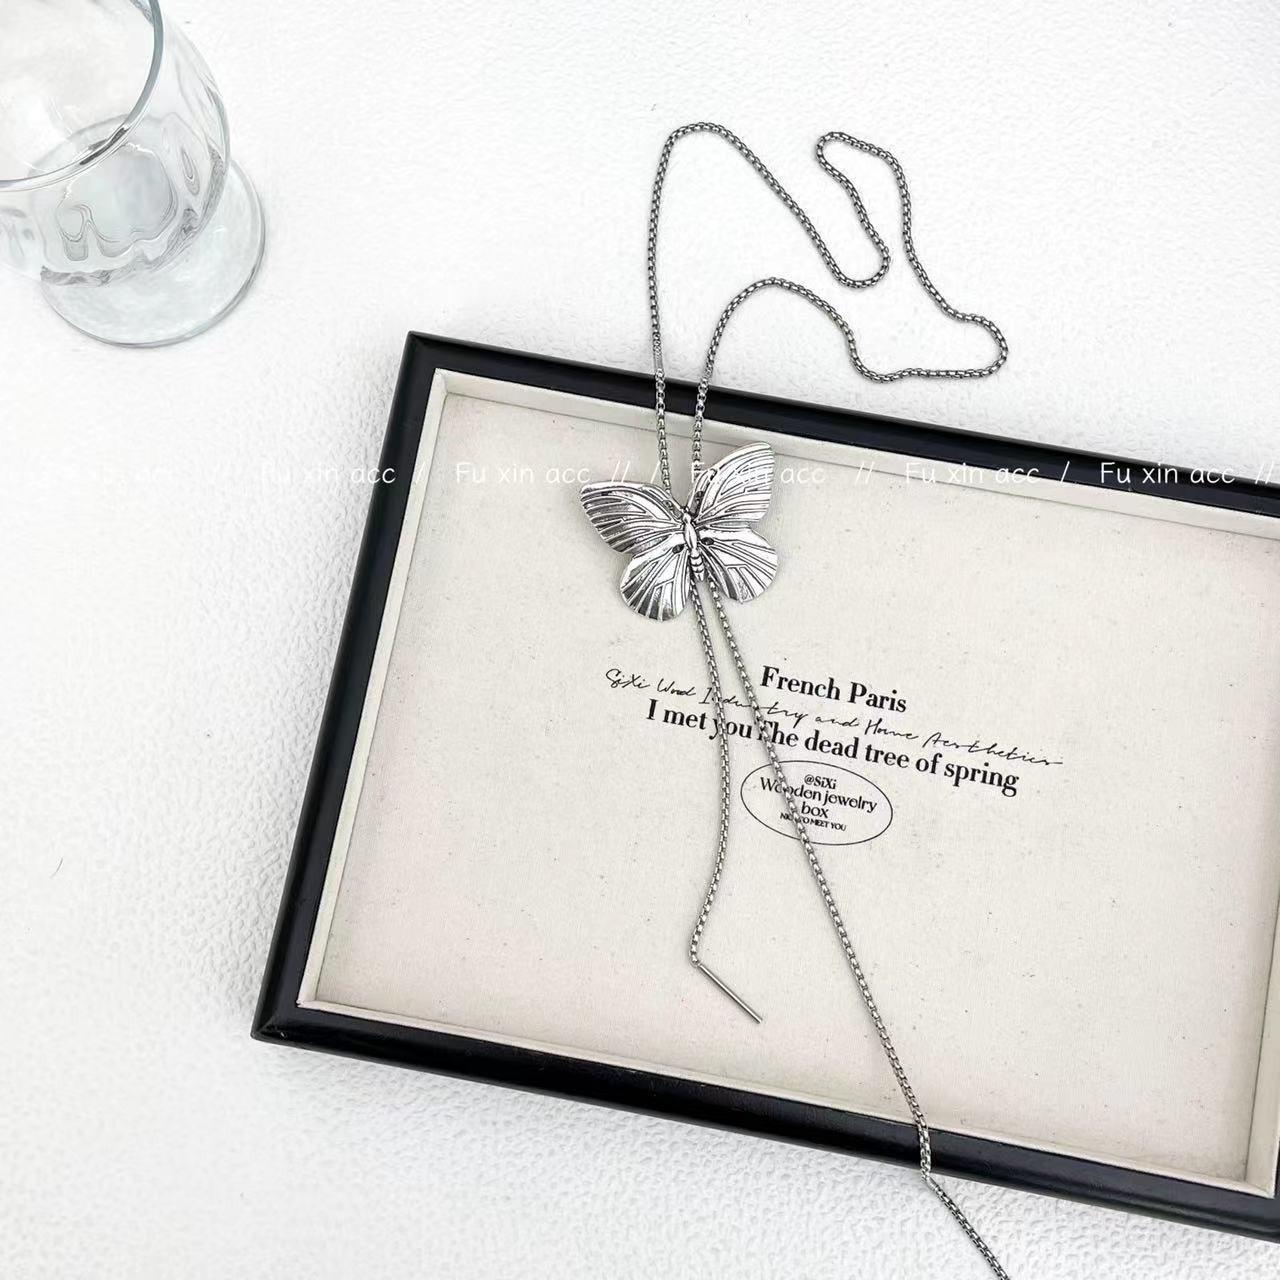 Fu xin acc / Fu xin acc // / Fu xin acc // Fu xin acc / Fu xin acc //
French Paris
SiXi Wood Industry and Home Aesthetics
I met you The dead tree of spring
@SiXi
Wooden jewelry
box
NICE TO MEET YOU